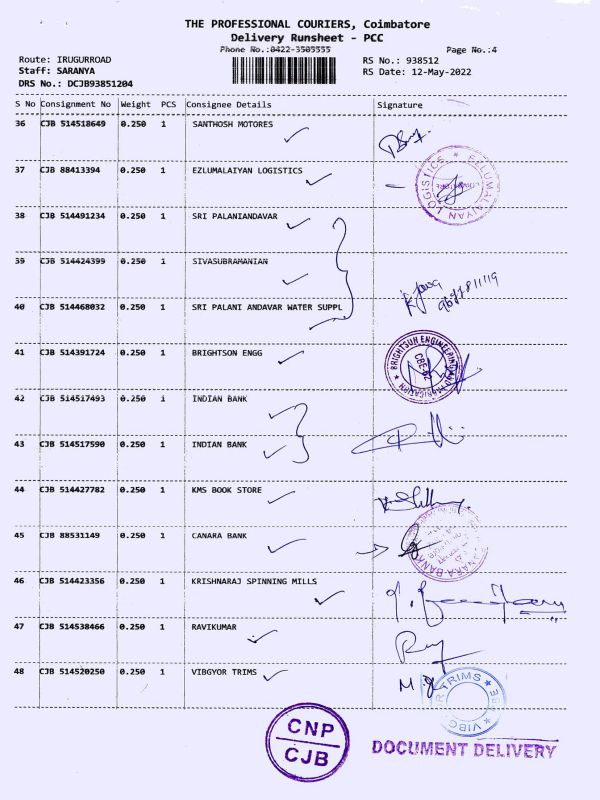 THE PROFESSIONAL COURIERS, Coimbatore
Delivery Runsheet - PCC
Phone No.:0422-3505555
Page No.:4
Route: IRUGURROAD
RS No.: 938512
Staff: SARANYA
RS Date: 12-May-2022
DRS No.: DCJB93851204
S No Consignment No Weight PCS Consignee Details Signature
36 CJB 514518649 0.250 1 SANTHOSH MOTORES
37 CJB 88413394 0.250 1 EZLUMALAIYAN LOGISTICS
EZLUMALAIYAN LOGISTICS
38 CJB 514491234 0.250 1 SRI PALANIANDAVAR
39 CJB 514424399 0.250 1 SIVASUBRAMANIAN
40 CJB 514468032 0.250 1 SRI PALANI ANDAVAR WATER SUPPL
41 CJB 514391724 0.250 1 BRIGHTSON ENGG
BRIGHTSUN ENGINEERING AND FABRICATION
42 CJB 514517493 0.250 1 INDIAN BANK
43 CJB 514517590 0.250 1 INDIAN BANK
44 CJB 514427782 0.250 1 KMS BOOK STORE
45 CJB 88531149 0.250 1 CANARA BANK
CANARA BANK
46 CJB 514423356 0.250 1 KRISHNARAJ SPINNING MILLS
47 CJB 514538466 0.250 1 RAVIKUMAR
48 CJB 514520250 0.250 1 VIBGYOR TRIMS
CNP
CJB
DOCUMENT DELIVERY